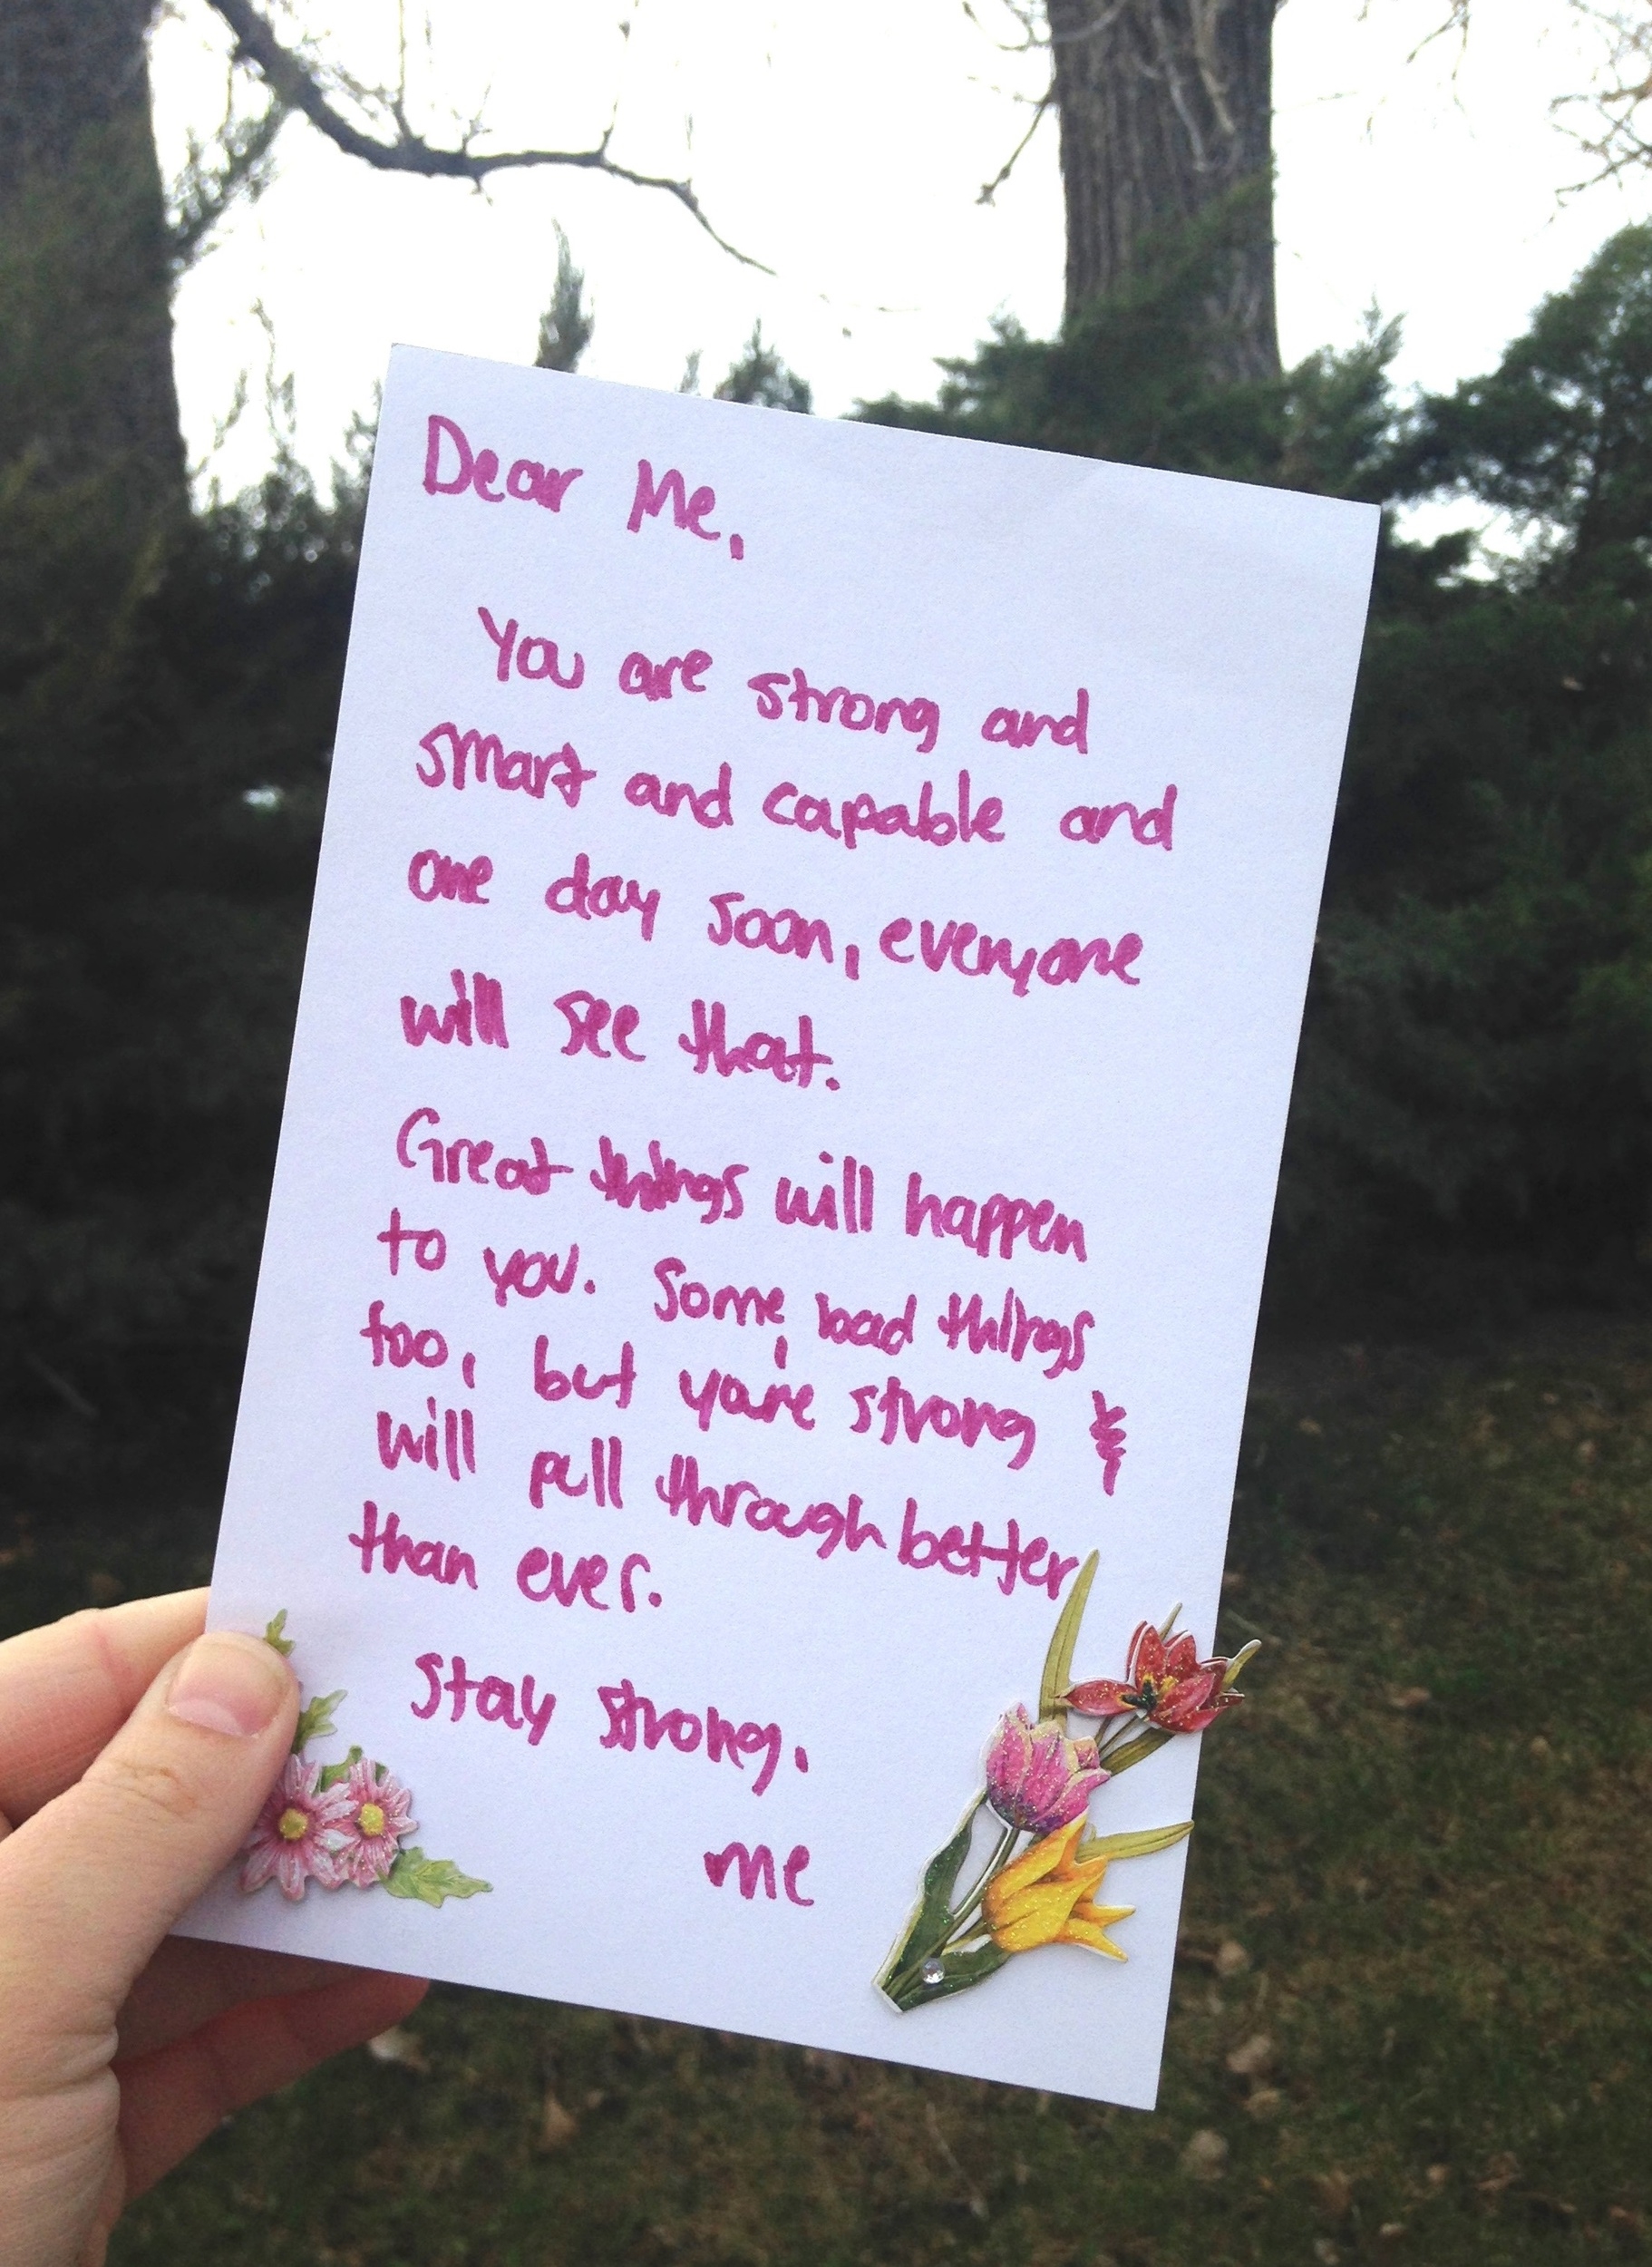 Dear Me,
You are strong and
smart and capable and
one day soon, everyone
will see that.
Great things will happen
to you. Some bad things
too, but you're strong &
will pull through better
than ever.
Stay strong.
me